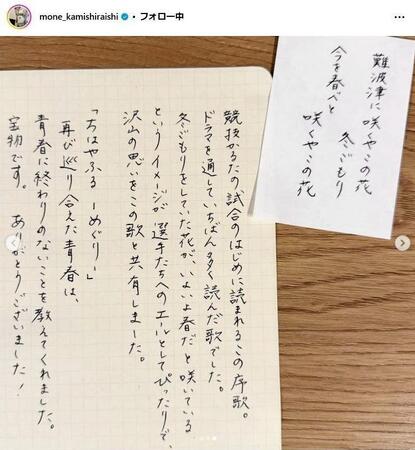 mone_kamishiraishi • フォロー中
難波津に咲くやこの花
冬ごもり
今を春べと
咲くやこの花
競技かるたの試合のはじめに読まれるこの序歌。
ドラマを通していちばん多く読んだ歌でした。
冬ごもりをしていた花が、いよいよ春だと咲いている
というイメージが選手たちへのエールとしてぴったりで、
沢山の思いをこの歌と共有しました。
「ちはやふる ーめぐりー」
再び巡り合えた青春は、
青春に終わりのないことを教えてくれました。
宝物です。 ありがとうございました!